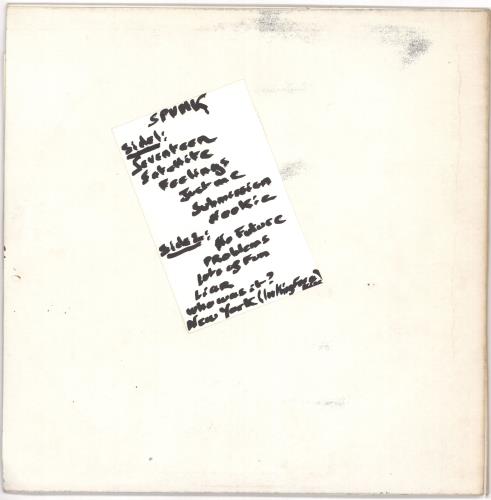 SPUNK
Side1:
Seventeen
Satellite
Feelings
Just me
Submission
Nookie
Side2:
No Future
Problems
Lots of Fun
Liar
Who was it?
New York (Looking for a)